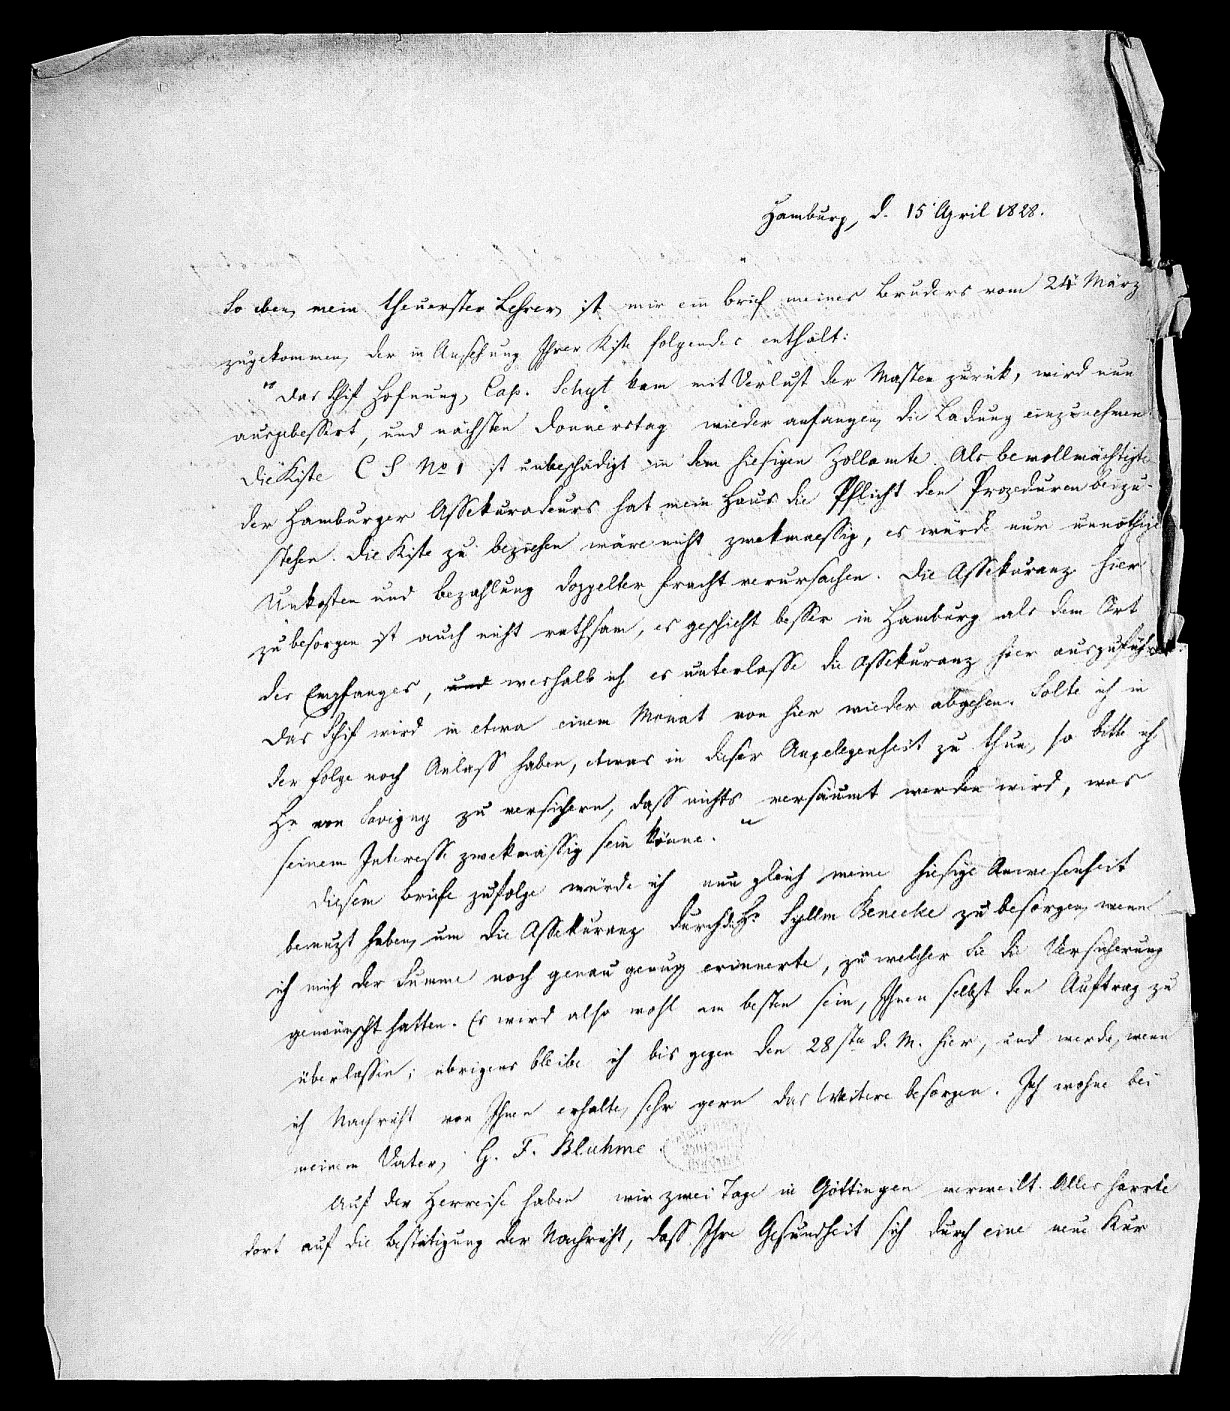 Hamburg, d. 15 April 1828.
So eben, mein theuerster Lehrer, ist mir ein Brief meines Bruders vom 24 März
zugekommen, der in Ansehung Ihrer Kiste folgendes enthält:
"Das Schif Hofnung, Cap. Schyt kam mit Verlust der Masten zurük, wird nun
ausgebessert, und nächsten Donnerstag wieder anfangen, die Ladung einzunehmen
Die Kiste C S No 1 ist unbeschädigt in dem hiesigen Zollamte. Als bevollmächtigte
der Hamburger Assekuradeurs hat mein Haus die Pflicht den Prozeduren beizu-
stehen. Die Kiste zu beziehen wäre nicht zwekmaessig, es würde nur unnöthige
Unkosten und Bezahlung doppelter Fracht verursachen. Die Assekuranz hier
zu besorgen ist auch nicht rathsam, es geschieht besser in Hamburg als dem Ort
des Empfanges, und weshalb ich es unterlasse die Assekuranz hier auszuführen.
Das Schif wird in etwa einem Monat von hier wieder abgehen. Solte ich in
der Folge noch Anlass haben, etwas in dieser Angelegenheit zu thun, so bitte ich
Hn von Savigny zu versichern, dass nichts versäumt werden wird, was
seinem Interesse zwekmässig sein könne."
Diesem Briefe zufolge würde ich nun gleich meine hiesige Anwesenheit
benuzt haben, um die Assekuranz durch die Hn Syllm Benecke zu besorgen, wenn
ich mich der Summe noch genau genug erinnerte, zu welcher Sie die Versicherung
gewünscht hatten. Es wird also wohl am besten sein, Ihnen selbst den Auftrag zu
überlassen; übrigens bleibe ich bis gegen den 28sten d. M. hier, und werde, wenn
ich Nachricht von Ihnen erhalte, sehr gern das Weitere besorgen. Ich wohne bei
meinem Vater, G. F. Bluhme
Auf der Herreise haben wir zwei Tage in Göttingen verweilt. Alles harrte
dort auf die Bestätigung der Nachricht, dass Ihre Gesundheit sich durch eine neue Kur